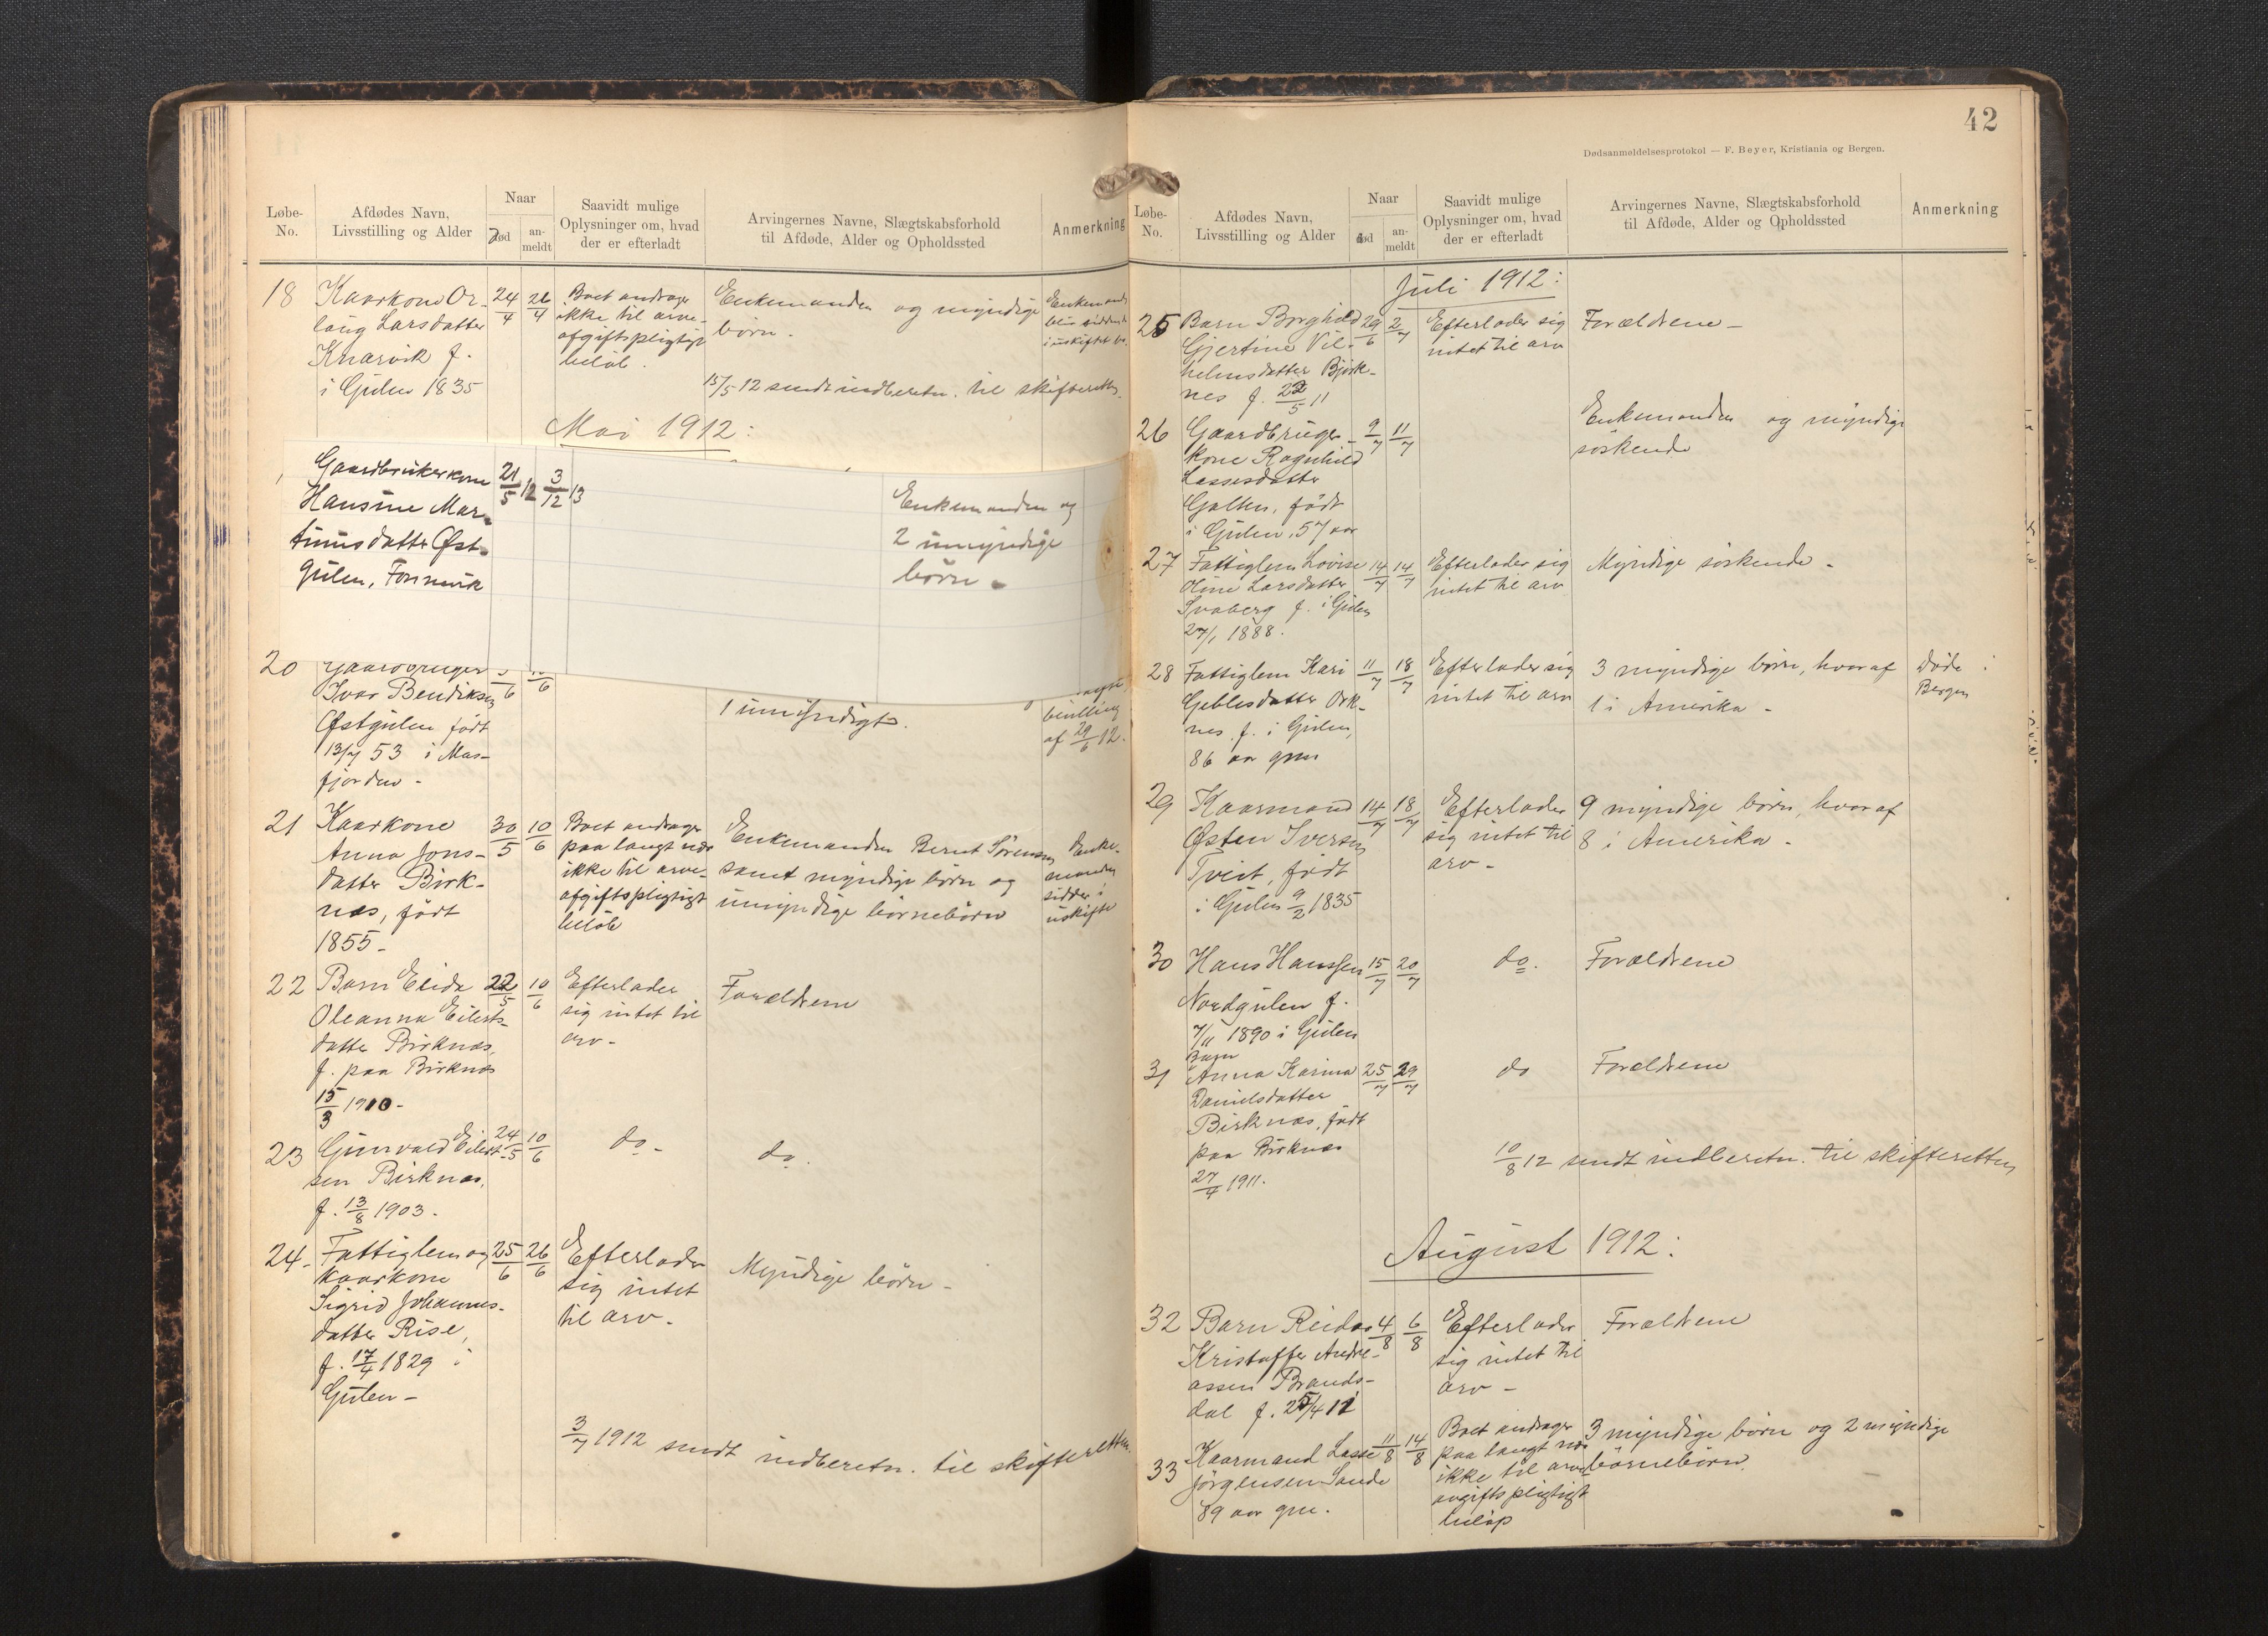 Løbe-No.
Afdødes Navn, Livsstilling og Alder
Naar
død
an-meldt
Saavidt mulige Oplysninger om, hvad der er efterladt
Arvingernes Navne, Slægtskabsforhold til Afdøde, Alder og Opholdssted
Anmerkning
18
Kaarkone Or-
laug Larsdatter
Knarvik f.
i Gulen 1835
24/4
26/4
Boet andrager
ikke til arve-
afgiftspligtigt
beløb.
Enkemanden og myndige
børn.
15/5 12 sendt indberetn. til skifteretten.
Mai 1912:
Gaardbrukerkone
Hansine Mar-
tinusdatter Øst-
gulen,
21/5 12
3/12 13
Enkemanden og
2 umyndige
børn -
20
Gaardbruger
Ivar Bendiksen
Østgulen født
13/7 53 i Mas-
fjorden -
1 umyndigt.
af 29/6 12.
21
Kaarkone
Anna Jons-
datter Birk-
nas, født
1855 -
30/5
10/6
Boet andrager
paa langt nær
ikke til arve-
afgiftspligtigt
beløb
Enkemanden Bernt Sørensen
samt myndige børn og
umyndige børnebørn
Enke-
manden
sidder i
uskifte
22
Barn Elida
Oleanna Eilerts-
datter Birknas,
f. paa Birknas
15/3 1910 -
22/5
10/6
Efterlader
sig intet til
arv -
Forældrene
23
Gunvald Eilert-
sen Birknas.
f. 13/8 1903 -
24/5
10/6
do -
do.
24 -
Fattiglem og
kaarkone
Sigrid Johannes-
datter Rise,
f. 17/4 1829 i
Gulen -
25/6
26/6
Efterlader
sig intet
til arv -
Myndige børn -
3/7 1912 sendt indberetn. til skifteretten.
42
Dødsanmeldelsesprotokol — F. Beyer, Kristiania og Bergen.
Løbe-No.
Afdødes Navn, Livsstilling og Alder
Naar
død
an-meldt
Saavidt mulige Oplysninger om, hvad der er efterladt
Arvingernes Navne, Slægtskabsforhold til Afdøde, Alder og Opholdssted
Anmerkning
Juli 1912:
25
Barn Borghild
Gjertine Vil-
helmsdatter Bjørk-
nes f. 22/5 11
29/6
2/7
Efterlader sig
intet til arv
Forældrene -
26
Gaardbruger-
kone Ragnhild
Lassesdatter
Galten, født
i Gulen, 57 aar
9/7
11/7
Enkemanden og myndige
søskende
27
Fattiglem Lovise
Oline Larsdatter
Svaberg f. i Gulen
27/1 1888.
14/7
14/7
Efterlader sig
intet til arv
Myndige søskende -
28
Fattiglem Kari
Geblesdatter Ork-
nes. f. i Gulen,
86 aar gml
11/7
18/7
Efterlader sig
intet til arv
3 myndige børn, hvoraf
1 i Amerika -
Døde i
Bergen
29
Kaarmand
Østen Iversen
Tveit, født
i Gulen 9/2 1835
14/7
18/7
Efterlader
sig intet til
arv -
9 myndige børn, hvoraf
8 i Amerika -
30
Hans Hanssen
Nordgulen f.
7/11 1890 i Gulen
15/7
20/7
do.
Forældrene
31
Barn
Anna Karina
Danielsdatter
Birknas, født
paa Birknas
27/4 1911.
25/7
29/7
do
Forældrene
10/8 12 sendt indberetn. til skifteretten
August 1912:
32
Barn Reidar
Kristoffer Andre-
assen Brands-
dal f. 25/4 12
4/8
6/8
Efterlader
sig intet til
arv -
Forældrene
33
Kaarmand Lasse
Jørgensen Sande
89 aar gml.
11/8
14/8
Boet andrager
paa langt nær
ikke til arve-
avgiftspligtigt
beløp
3 myndige børn og 2 myndige
børnebørn.